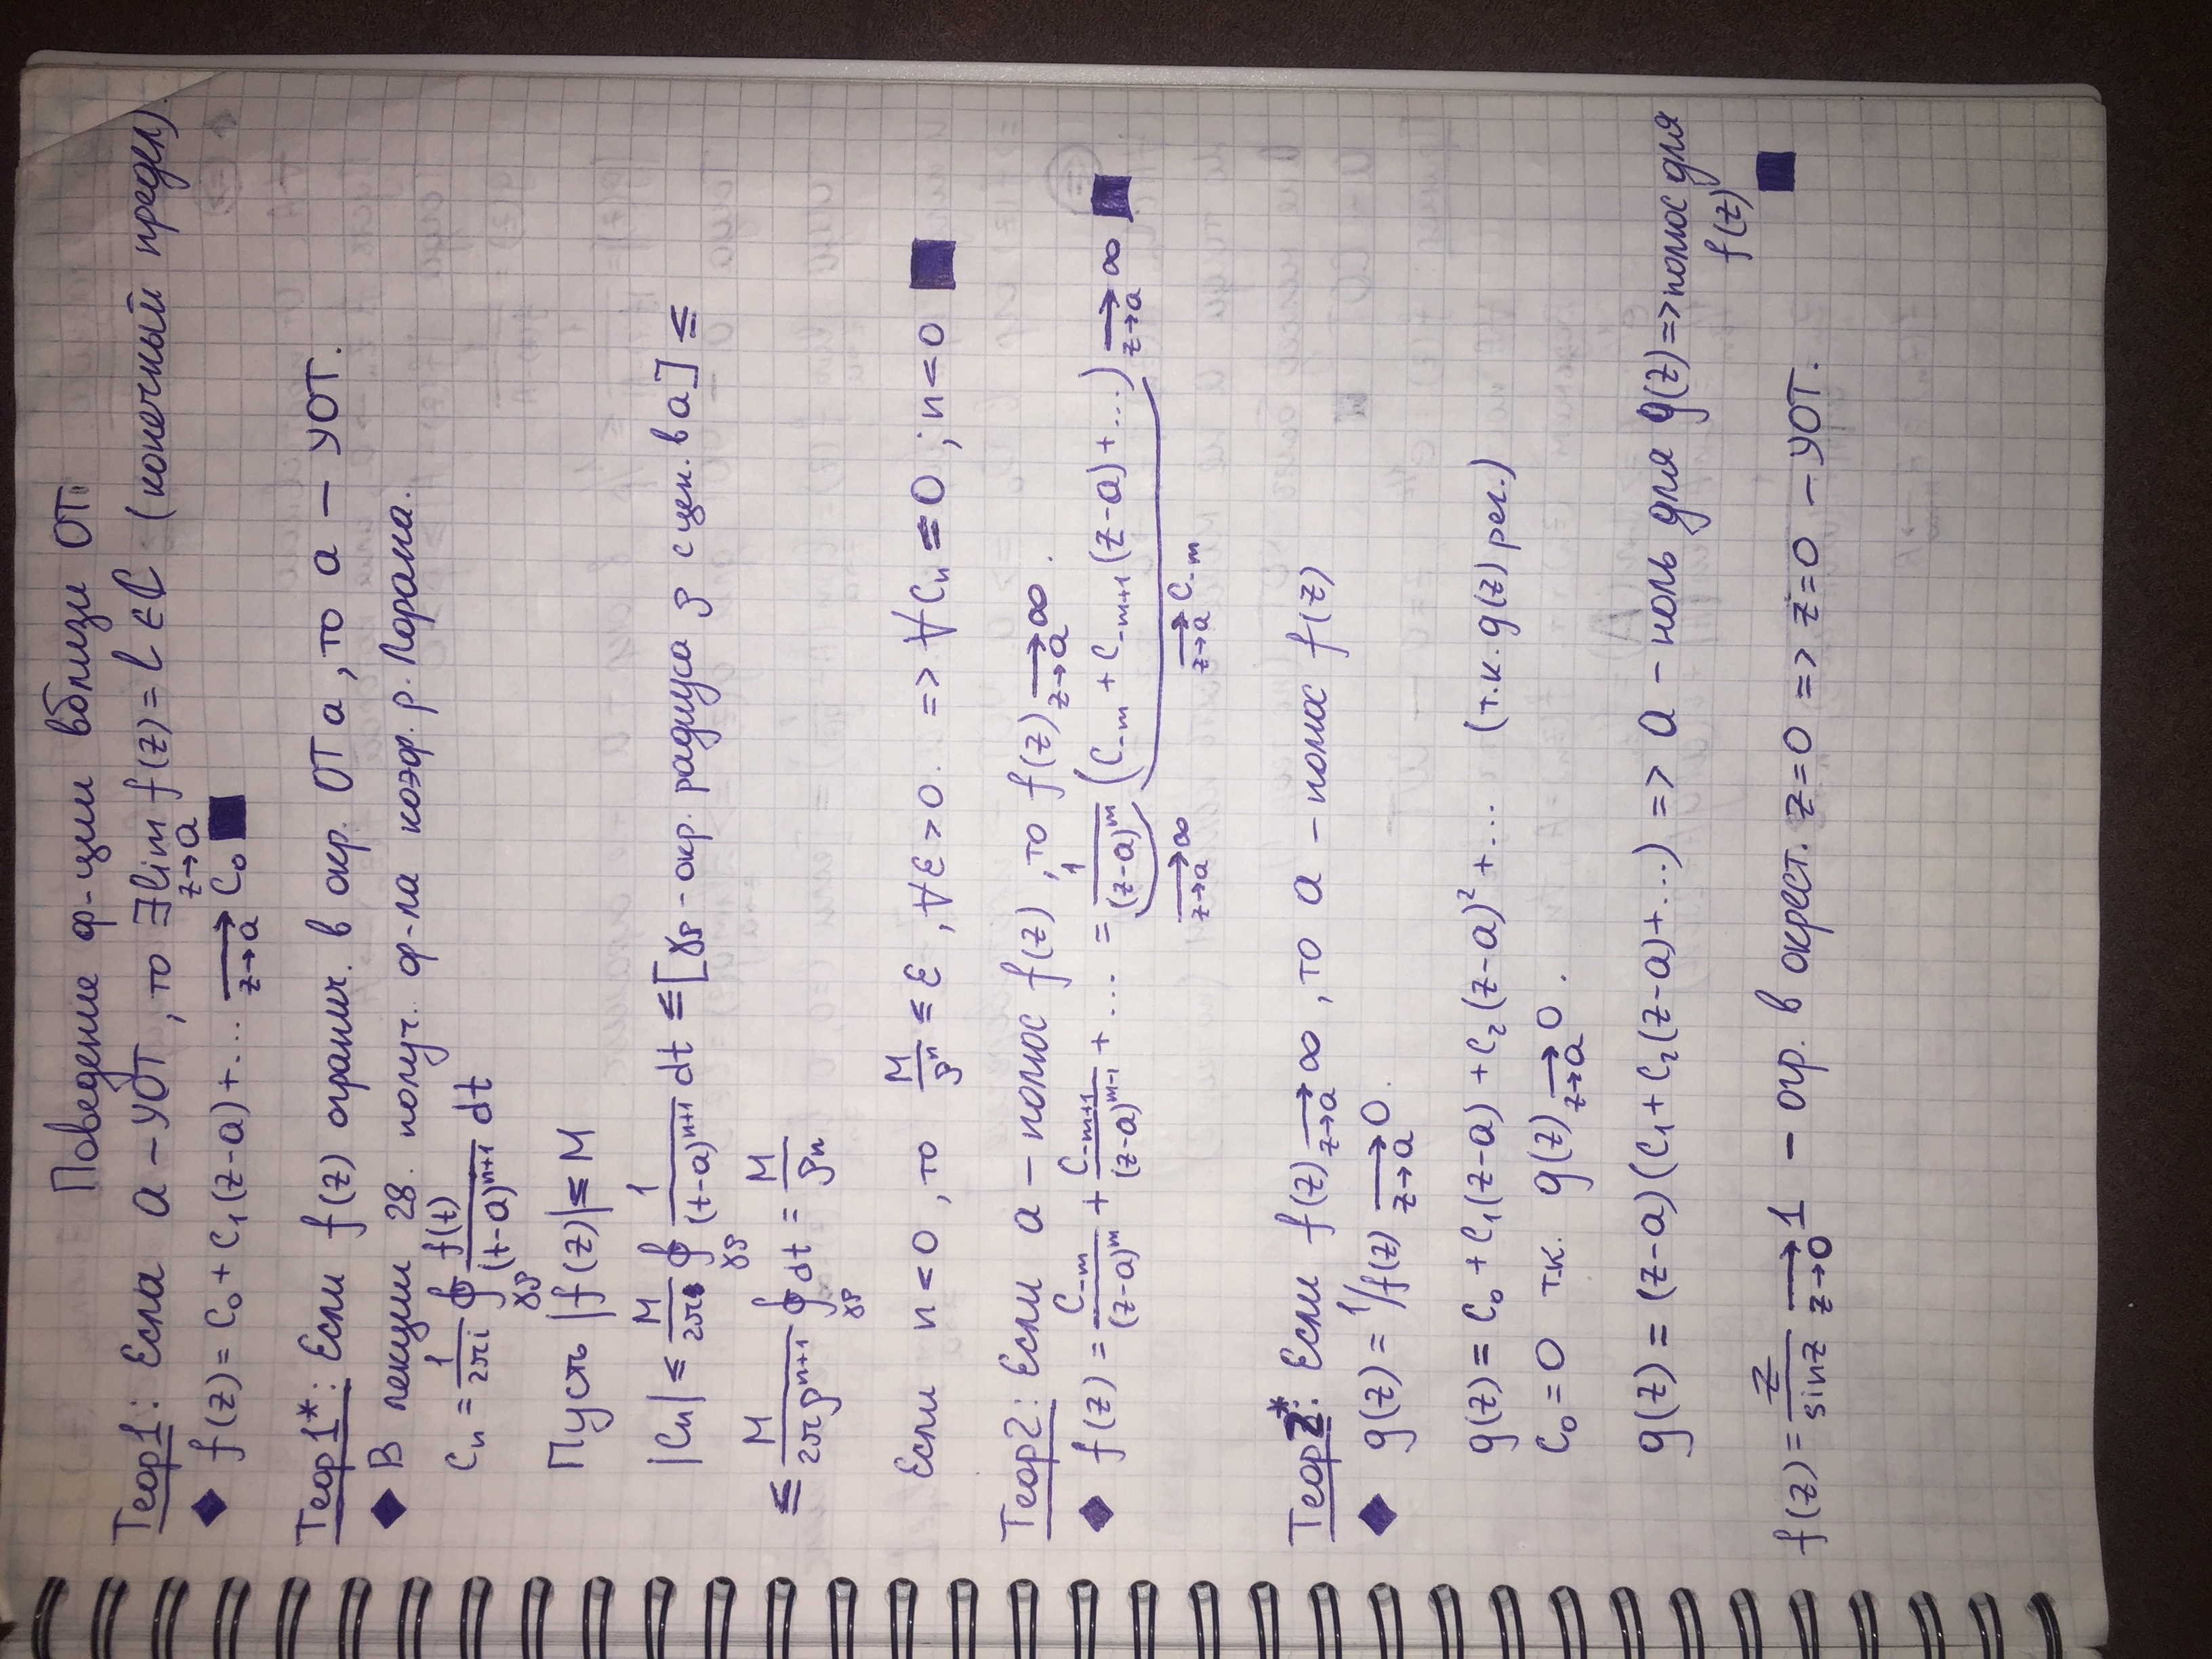 Поведение ф-ции вблизи ОТ
Теор1: Если a – УОТ, то ∃ lim_{z→a} f(z) = l ∈ ℂ (конечный предел).
◆ f(z) = C₀ + C₁(z-a) + ... →_{z→a} C₀ ■
Теор1*: Если f(z) огранич. в окр. ОТ a, то a – УОТ.
◆ В лекции 28. получ. ф-ла коэф. р. Лорана.
Cₙ = 1/(2πi) ∮_{γρ} f(t)/(t-a)^{n+1} dt
Пусть |f(z)| ≤ M
|Cₙ| ≤ M/(2π) ∮_{γρ} 1/(t-a)^{n+1} dt ≤ [γρ - окр. радиуса ρ с цен. в a] ≤
≤ M/(2πρ^{n+1}) ∮_{γρ} dt = M/ρⁿ
Если n < 0, то M/ρⁿ ≤ ε, ∀ε > 0. => ∀Cₙ = 0; n < 0 ■
Теор2: Если a – полюс f(z), то f(z) →_{z→a} ∞.
◆ f(z) = C_{-m}/(z-a)^m + C_{-m+1}/(z-a)^{m-1} + ... = 1/(z-a)^m (C_{-m} + C_{-m+1}(z-a) + ...) →_{z→a} ∞ ■
→_{z→a} ∞ →_{z→a} C_{-m}
Теор2*: Если f(z) →_{z→a} ∞, то a – полюс f(z)
◆ g(z) = 1/f(z) →_{z→a} 0.
g(z) = C₀ + C₁(z-a) + C₂(z-a)² + ... (т.к. g(z) рег.)
C₀ = 0 т.к. g(z) →_{z→a} 0.
g(z) = (z-a)(C₁ + C₂(z-a) + ...) => a – ноль для g(z) => полюс для
f(z)
■
f(z) = z/sinz →_{z→0} 1 – огр. в окрест. z=0 => z=0 – УОТ.